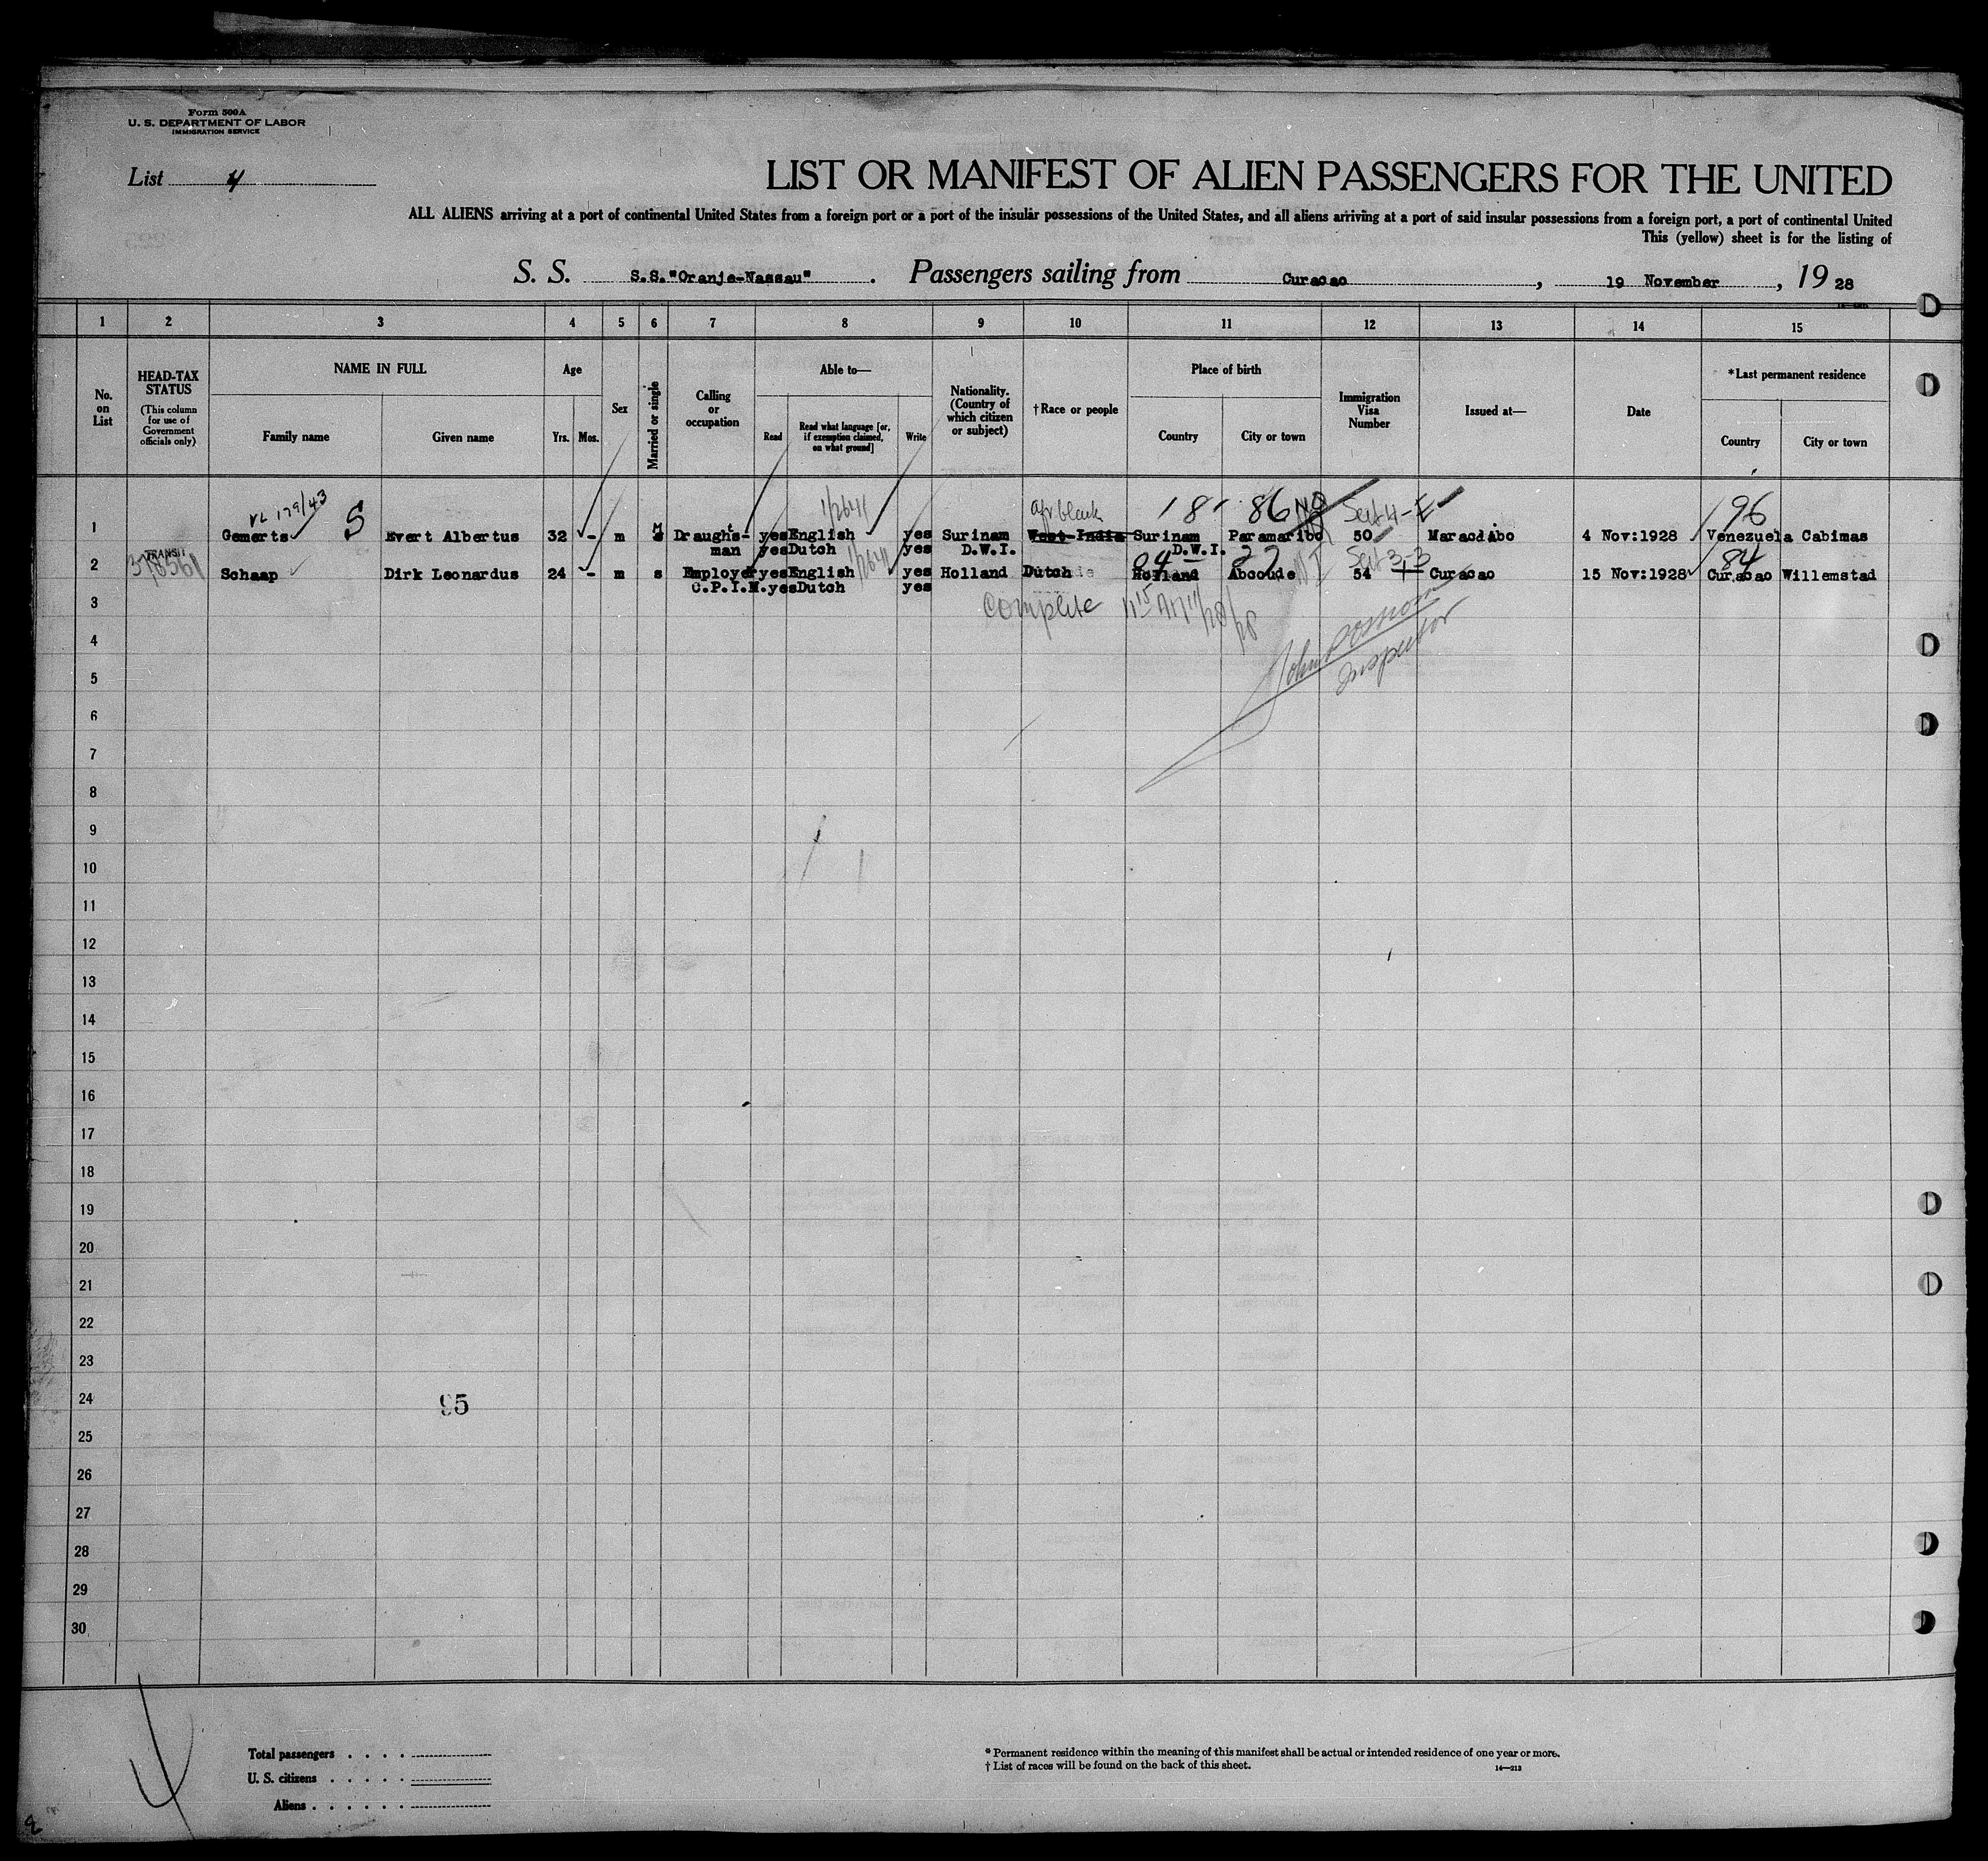 Form 500A
U. S. DEPARTMENT OF LABOR
IMMIGRATION SERVICE
List 4
LIST OR MANIFEST OF ALIEN PASSENGERS FOR THE UNITED
ALL ALIENS arriving at a port of continental United States from a foreign port or a port of the insular possessions of the United States, and all aliens arriving at a port of said insular possessions from a foreign port, a port of continental United
This (yellow) sheet is for the listing of
S. S. S.S."Oranje-Nassau". Passengers sailing from Curacao, 19 November, 19 28
1 2 3 4 5 6 7 8 9 10 11 12 13 14 15
No. on List
HEAD-TAX STATUS (This column for use of Government officials only)
NAME IN FULL
Family name Given name
Age
Yrs. Mos.
Sex
Married or single
Calling or occupation
Able to—
Read Read what language [or, if exemption claimed, on what ground] Write
Nationality. (Country of which citizen or subject)
†Race or people
Place of birth
Country City or town
Immigration Visa Number
Issued at—
Date
*Last permanent residence
Country City or town
179/43 S 1/2641 Afr black 18 86 96
1 Gemerts Evert Albertus 32 - m s Draughts- yes English yes Surinam West-India Surinam Paramaribo 50 Maracaibo 4 Nov:1928 Venezuela Cabimas
man yes Dutch yes D.W.I. D.W.I.
TRANSIT 04 27 84
2 Schaap Dirk Leonardus 24 - m s Employer yes English yes Holland Dutch Holland Abcoude 54 Curacao 15 Nov:1928 Curacao Willemstad
C.P.I.M. yes Dutch yes
3 Complete
Inspector
4
5
6
7
8
9
10
11
12
13
14
15
16
17
18
19
20
21
22
23
24
95
25
26
27
28
29
30
4
Total passengers . . . .
U. S. citizens . . . . .
Aliens . . . . . .
* Permanent residence within the meaning of this manifest shall be actual or intended residence of one year or more.
† List of races will be found on the back of this sheet.
14—213